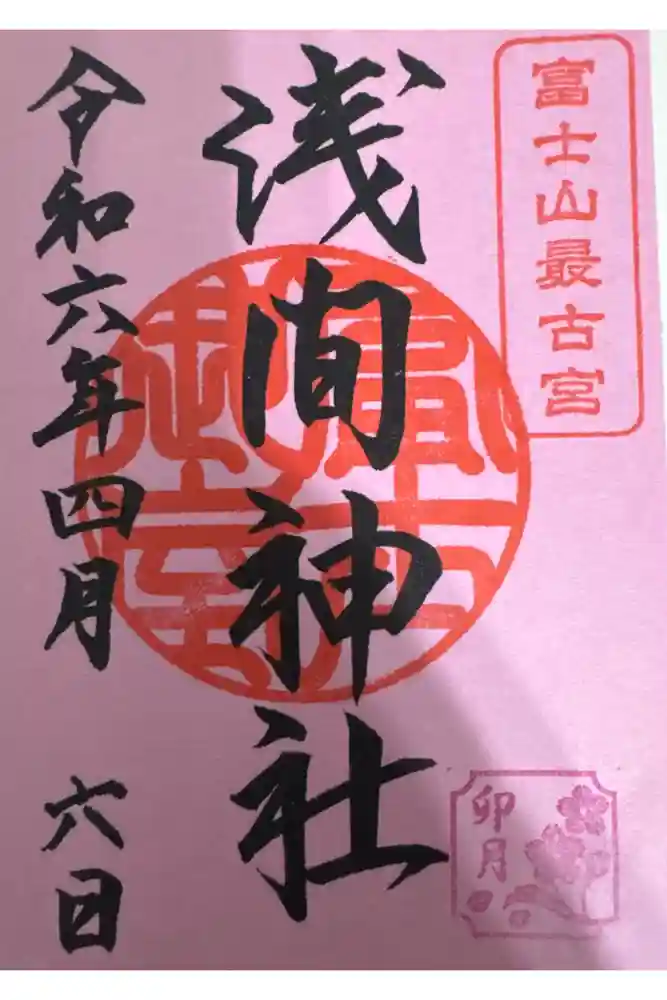 富士山最古宮
浅间神社
令和六年四月 六日
卯月